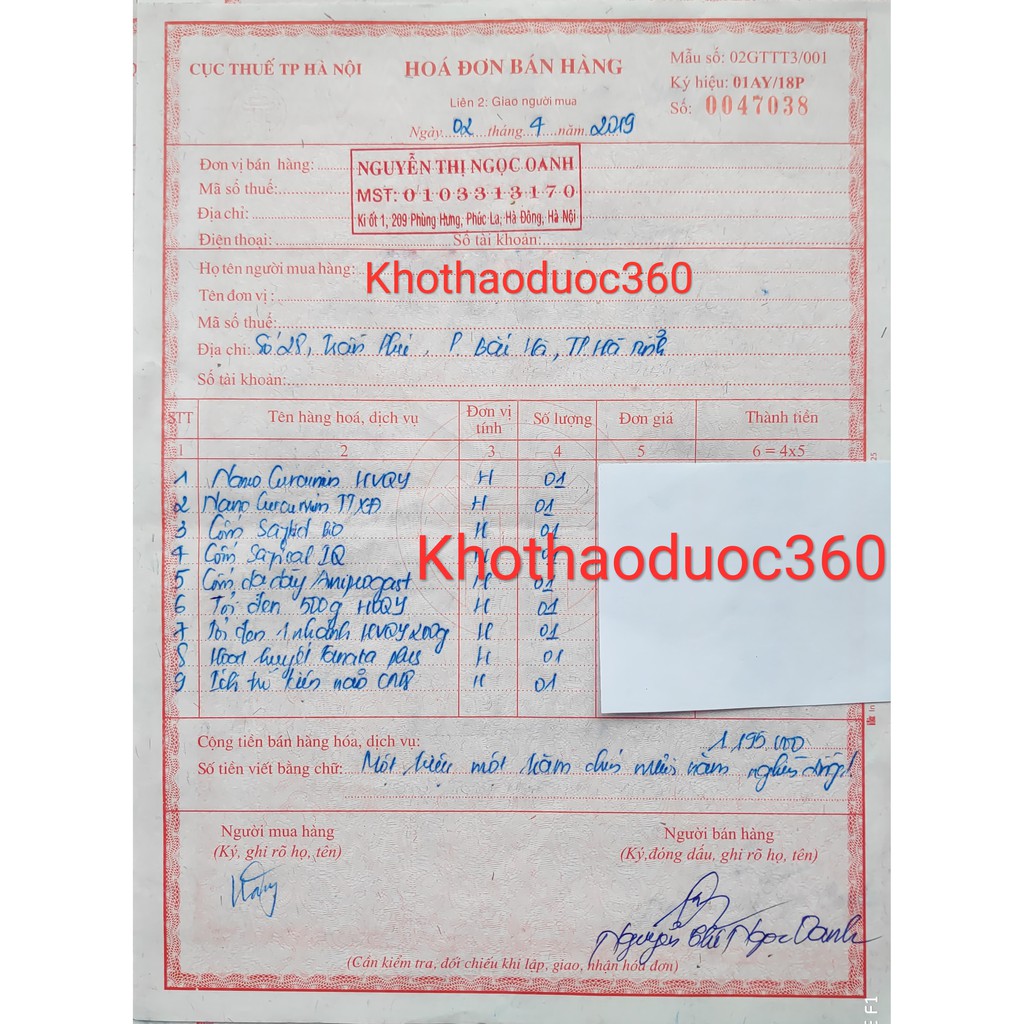 CỤC THUẾ TP HÀ NỘI
HOÁ ĐƠN BÁN HÀNG
Mẫu số: 02GTTT3/001
Ký hiệu: 01AY/18P
Số: 0047038
Liên 2: Giao người mua
Ngày 02 tháng 4 năm 2019
Đơn vị bán hàng: NGUYỄN THỊ NGỌC OANH
Mã số thuế: MST: 0103313170
Địa chỉ: Ki ốt 1, 209 Phùng Hưng, Phúc La, Hà Đông, Hà Nội
Điện thoại: Số tài khoản:
Họ tên người mua hàng: Khothaoduoc360
Tên đơn vị :
Mã số thuế:
Địa chỉ: Số 28, Trần Phú, P. Bắc Hà, TP Hà Tĩnh
Số tài khoản:
STT Tên hàng hoá, dịch vụ Đơn vị tính Số lượng Đơn giá Thành tiền
1 2 3 4 5 6 = 4x5
1 Nano Curcumin HVQY H 01
2 Nano Curcumin H 01
3 Cốm H 01
4 Cốm IQ 01
Khothaoduoc360
5 Cốm dạ dày H 01
6 Tỏi đen 500g HVQY H 01
7 Tỏi đen 1 nhánh HVQY 200g H 01
8 Hoạt huyết plus H 01
9 Ích trí kiện não H 01
Cộng tiền bán hàng hóa, dịch vụ: 1.195.000
Số tiền viết bằng chữ: Một triệu một trăm chín mươi năm nghìn đồng!
Người mua hàng
(Ký, ghi rõ họ, tên)
Người bán hàng
(Ký,đóng dấu, ghi rõ họ, tên)
Nguyễn Thị Ngọc Oanh
(Cần kiểm tra, đối chiếu khi lập, giao, nhận hóa đơn)